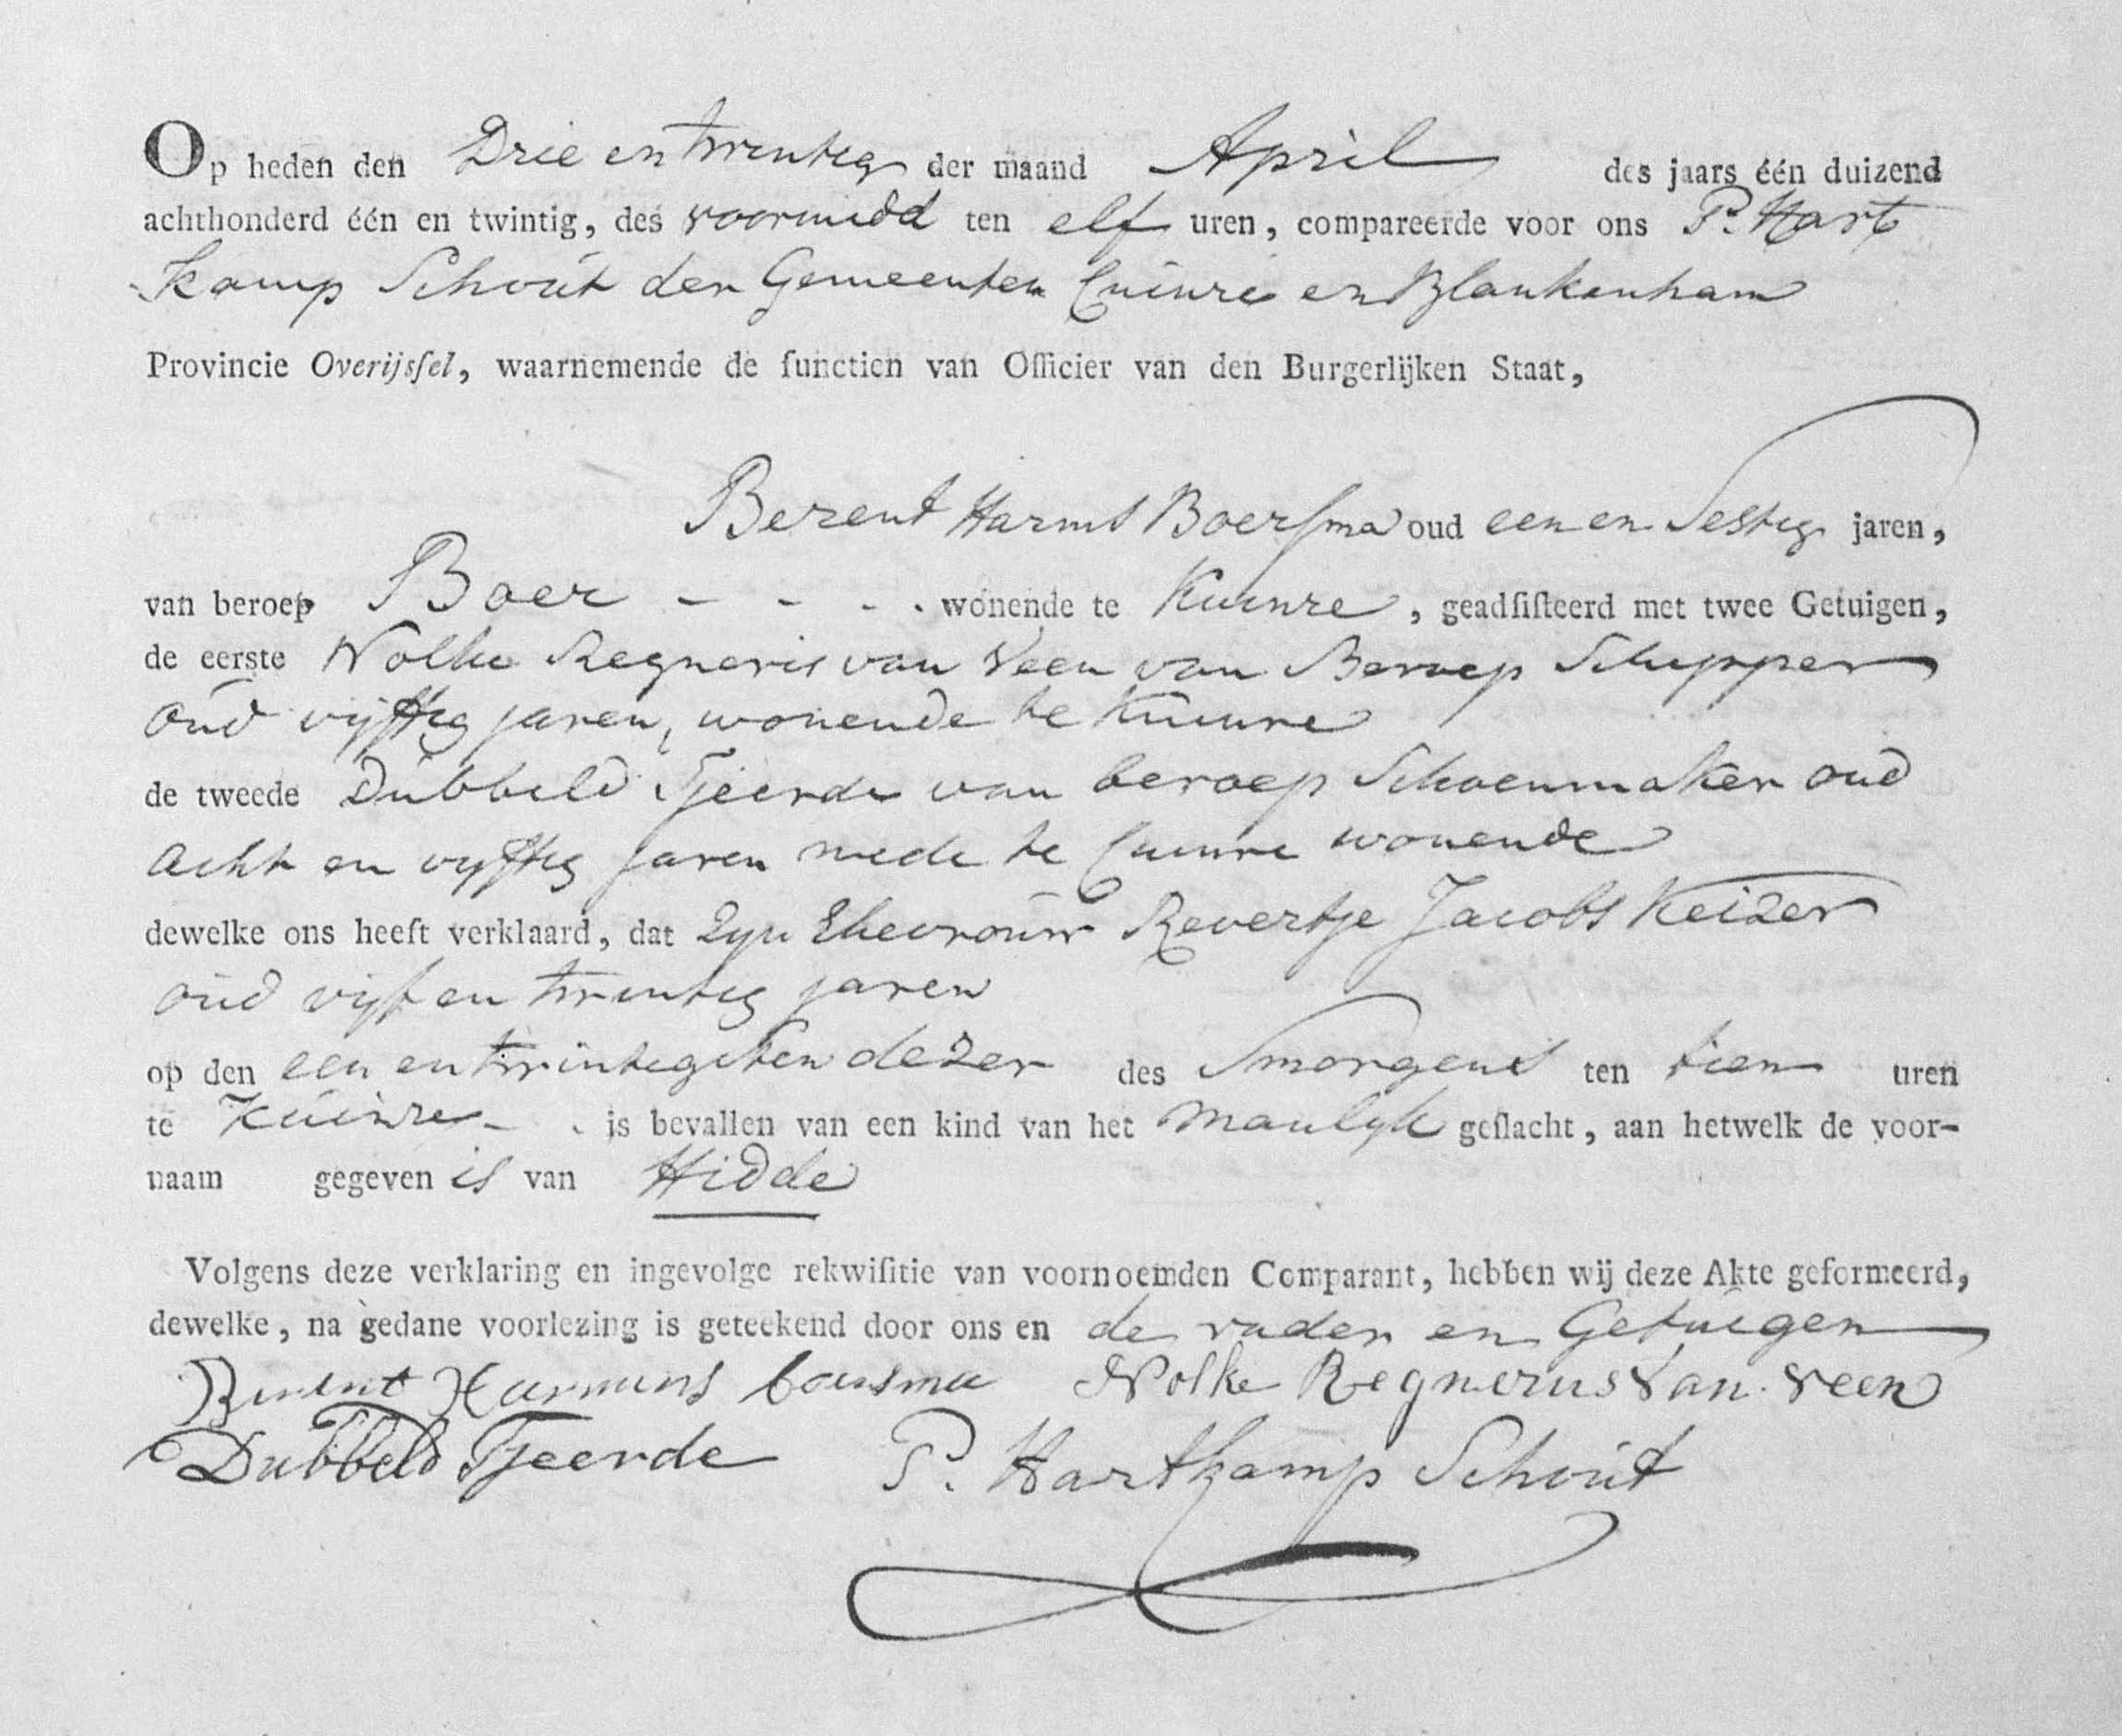 Op heden den Drie en twintig der maand April des jaars één duizend
achthonderd één en twintig, des voormidd ten elf uren, compareerde voor ons P. Hart
kamp Schout der Gemeenten Cuinre en Blankenham
Provincie Overijsſel, waarnemende de functien van Officier van den Burgerlijken Staat,
Berent Harms Boerſma oud een en Sestig jaren,
van beroep Boer - - - - wonende te Kuinre, geadſiſteerd met twee Getuigen,
de eerste Nolke Regneris van Veen van Beroep Schipper
oud vijftig jaren, wonende te Kuinre
de tweede Dubbeld Tjeerde van beroep Schoenmaker oud
acht en vyftig jaren mede te Cuinre wonende
dewelke ons heeft verklaard, dat Zyn Ehevrouw Revertje Jacobs Keizer
oud vijf en twintig jaren
op den een en twintigsten dezer des Smorgens ten tien uren
te Kuinre - . is bevallen van een kind van het Manlyk geſlacht, aan hetwelk de voor-
naam gegeven is van Hidde
Volgens deze verklaring en ingevolge rekwiſitie van voornoemden Comparant, hebben wij deze Akte geformeerd,
dewelke, na gedane voorlezing is geteekend door ons en de vader en Getuigen
Berent Harmens boersma Nolke Regnerus Van Veen
Dubbeld Tjeerde P. Hartkamp Schout